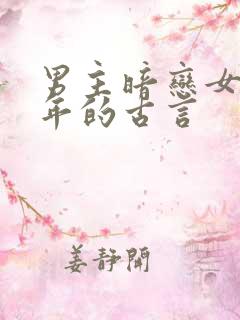 男主暗戀女
年的古言
姜靜開